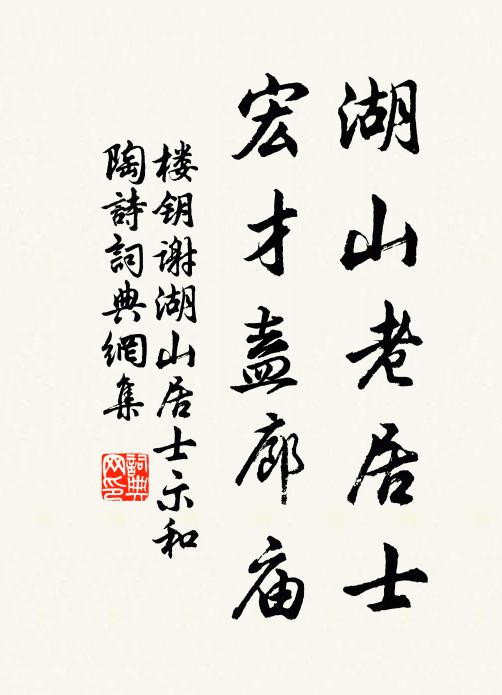 湖山老居士
宏才盍廊庙
楼钥谢湖山居士示和
陶詩詞典網集
詞典
网印